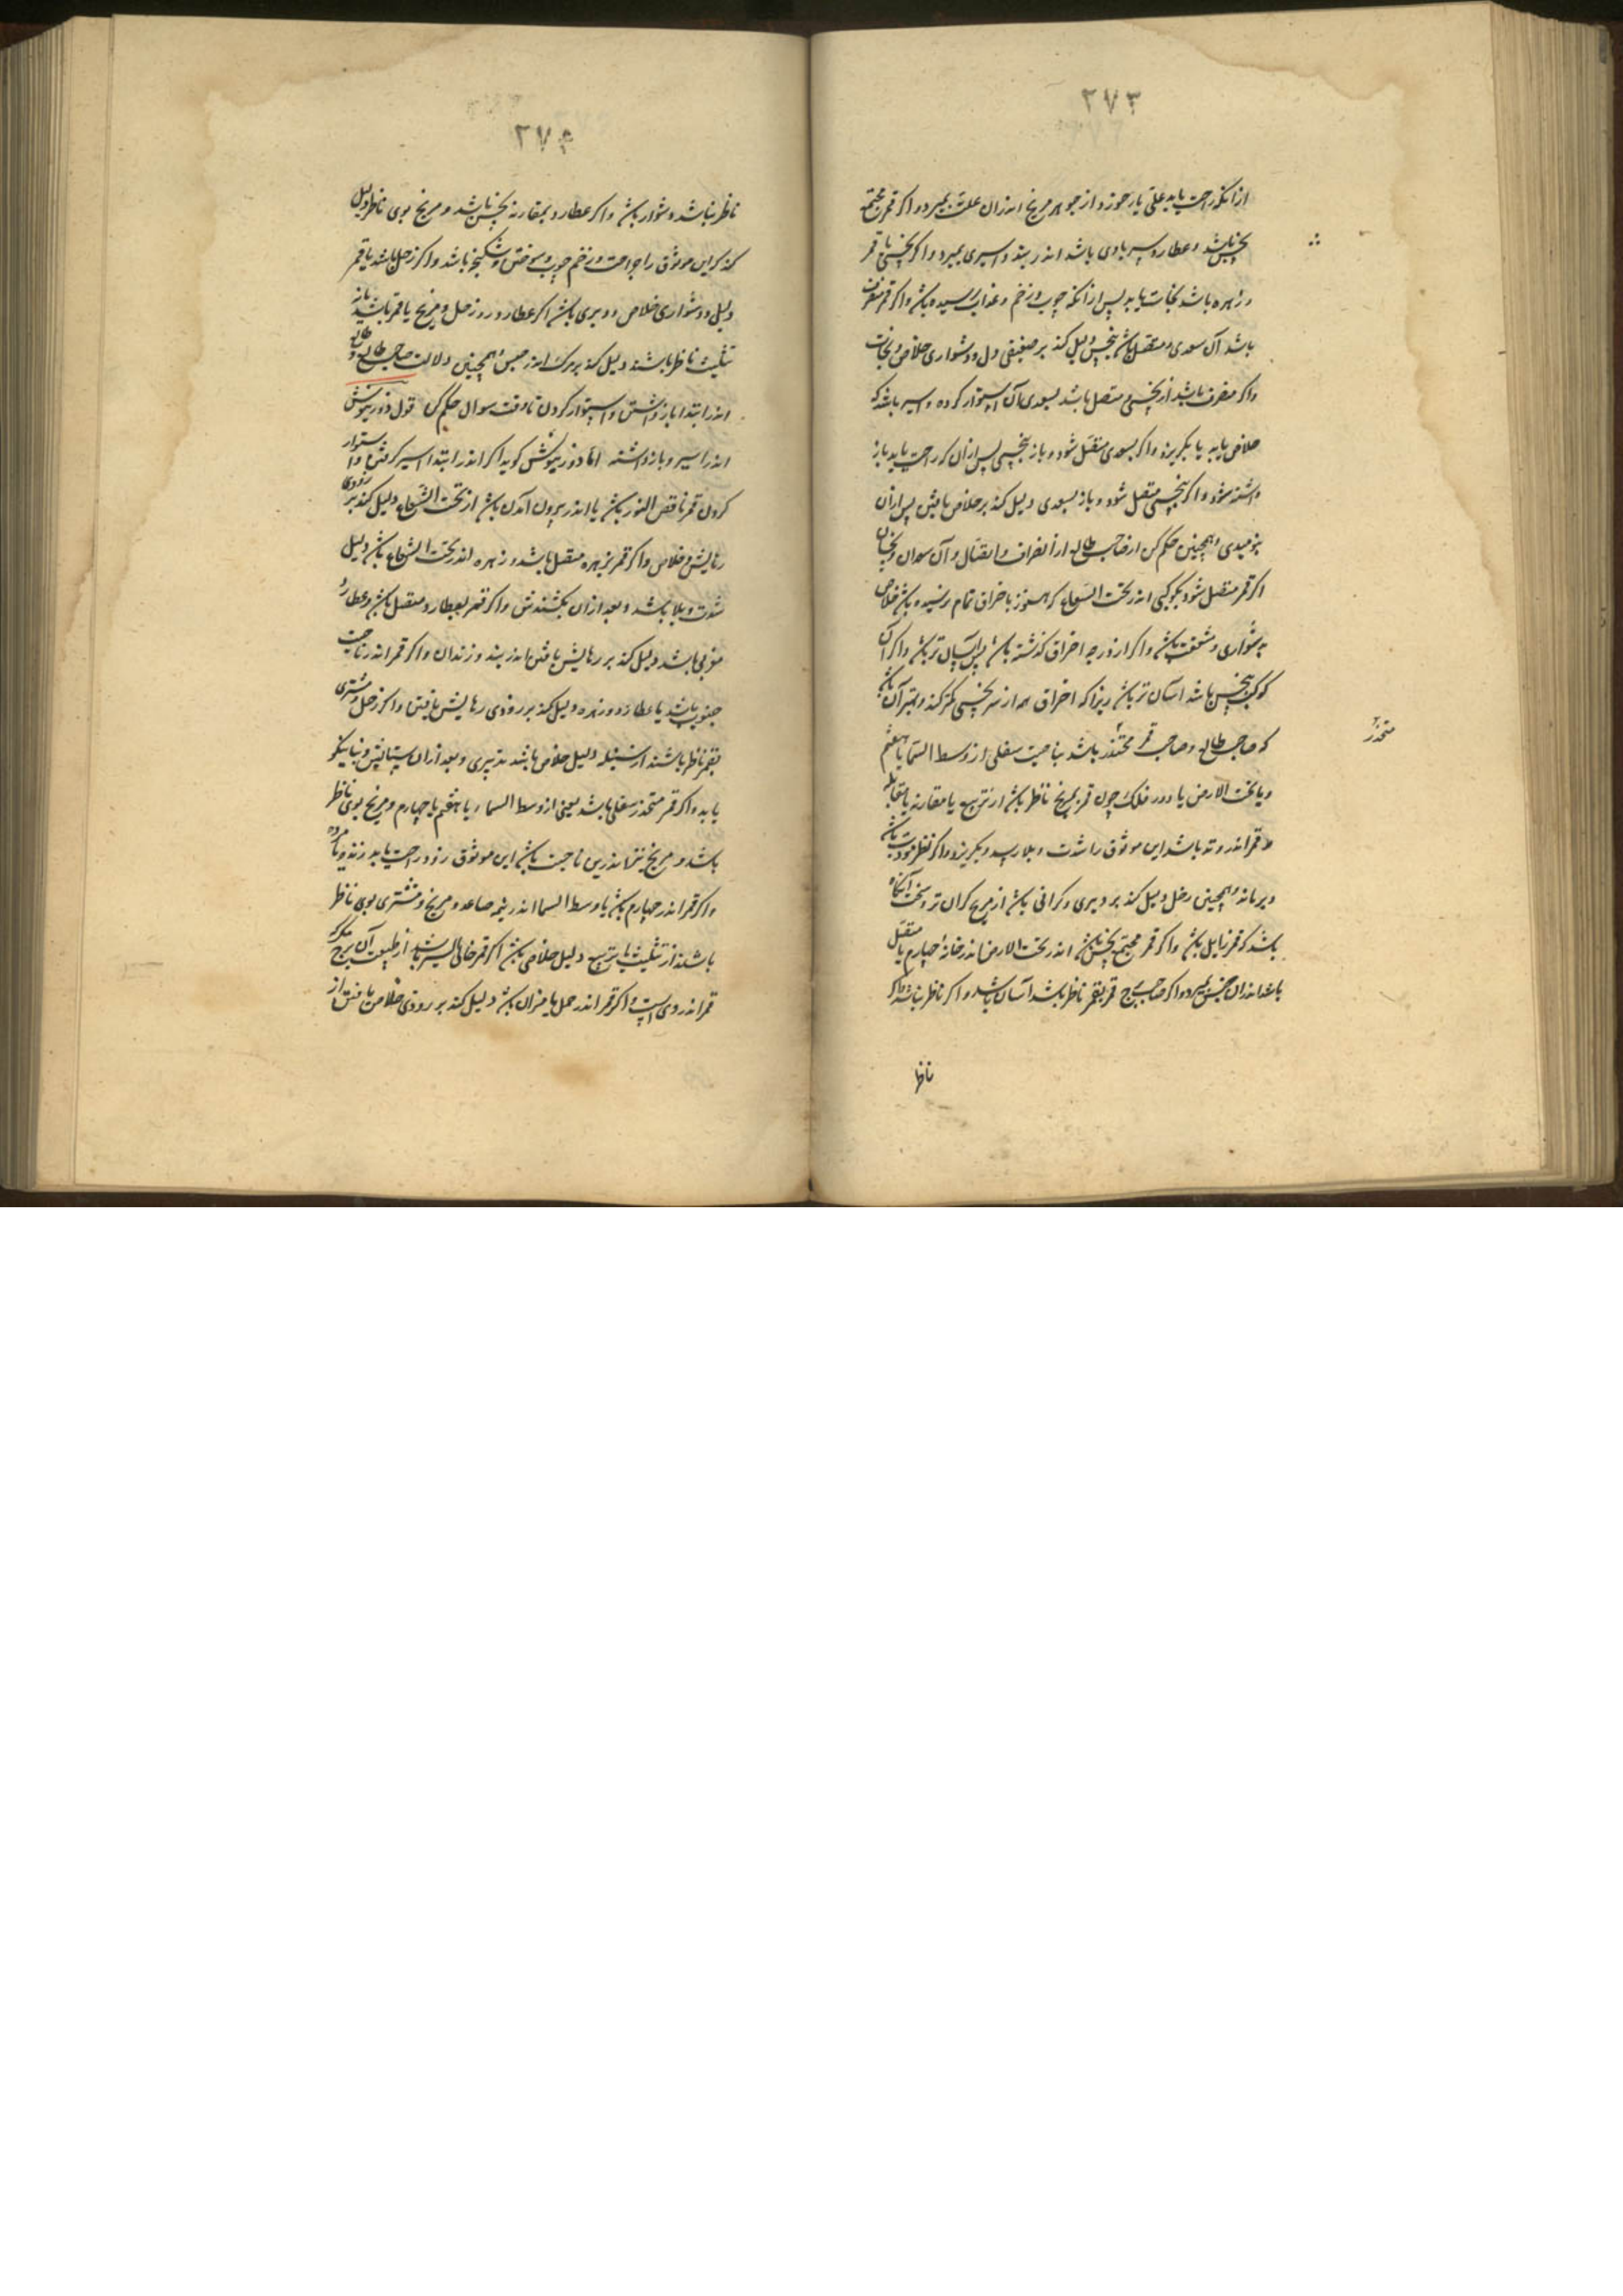 ۲۷۳
از آنکه راحت یابد علتی یا زحیر و از جوهر مریخ اندران علت بمیرد و اگر قمر مجتمع
بنحس باشد و عطارد سیر بادی باشد اندر بند و اسیری بمیرد و اگر نحسی با قمر
و زهره باشد نجات یابد پس از آنکه چوب و زخم و عذاب رسیده باشد و اگر قمر منصرف
باشد از سعدی و متصل باشد بنحس دلیل کند بر ضعیفی دل و دشواری خلاص و نجات
واگر منصرف باشد از نحسی و متصل باشد بسعدی آن استوار کرده و اسیر باشد که
خلاص یابد یا بگریزد واگر بسعدی متصل شود و باز بنحسی پس ازان که راحت یابد باز
داشته شود و اگر بنحسی متصل شود و باز بسعدی دلیل کند بر خلاص یافتن پس ازان
نومیدی و همچنین حکم کن از صاحب طالع از انصراف و اتصال و آن سعدان و نحسان
اگر قمر متصل شود بکوکبی اندر تحت الشعاع که هنوز باحراق تمام نرسیده باشد خلاص
بدشواری و مشقت باشد و اگر از درجه احراق گذشته باشد پس آسان تر باشد و اگر آن
کوکب نحس باشد آسان تر باشد زیرا که احراق همه از شر نحسی کمتر کند و بتر آن باشد
که صاحب طالع و صاحب قمر منحدر باشد بناحیت سفلی از وسط السما یا هفتم
منحدر
ویا تحت الارض یا دور فلک چون قمر بمریخ ناظر باشد از تربیع یا مقارنه یا مقابله
و قمر اندر وتد باشد این موثوق را شدت و بلا رسد و بگریزد و اگر نظر مودت باشد
دیر ماند و همچنین زحل دلیل کند بر دیری و گرانی باشد از مریخ گران تر و سخت آنگاه
باشد که قمر زایل باشد و اگر قمر مجتمع بنحس باشد اندر تحت الارض اندر خانهٔ چهارم یا متصل
باشد اندران حبس بمیرد و اگر صاحب برج قمر بقمر ناظر باشد آسان باشد و اگر ناظر نباشد و اگر
ناظر
۲۷۴
ناظر نباشد دشوار باشد و اگر عطارد بمقارنه نحس باشد و مریخ بوی ناظر دلیل
کند که این موثوق را جراحت و زخم چوب و سوختن و شکنجه باشد و اگر زحل باشد با قمر
دلیل و دشواری خلاص و دیری باشد اگر عطارد و زحل و مریخ یا قمر باشند یا از
تثلیث ناظر باشند دلیل کند بر مرگ اندر حبس و همچنین دلالت صاحب طالع و طالع
اندر ابتدا بازداشتن و استوار کردن تا وقت سوال حکم کن قول ذورنیوش
اندر اسیر و بازداشته اما ذورنیوش گوید اگر اندر ابتدا اسیر گرفتن یا استوار
کردن قمر ناقص النور باشد یا اندر بیرون آمدن باشد از تحت الشعاع دلیل کند بر زودی
رهایش و خلاص و اگر قمر بزهره متصل باشد و زهره اندر تحت الشعاع باشد دلیل
شدت و بلا باشد و بعد ازان بکشندش و اگر قمر بعطارد متصل باشد و عطارد
مغربی باشد دلیل کند بر رهایش یافتن اندر بند و زندان و اگر قمر اندر ناحیت
جنوب باشد یا عطارد و زهره دلیل کند بر زودی رهایش یافتن و اگر زحل و مشتری
بقمر ناظر باشند از سنبله دلیل خلاص باشد بتدبیری و بعد ازان ستایش و ثنا نیکو
یابد و اگر قمر منحدر سفلی باشد یعنی از وسط السماء یا هفتم یا چهارم و مریخ بوی ناظر
باشد و مریخ نیز اندرین ناحیت باشد این موثوق زود راحت یابد زنده یا مرده
و اگر قمر اندر چهارم باشد یا وسط السما اندر نیمه صاعد و مریخ و مشتری بوی ناظر
باشند از تثلیث یا تربیع دلیل خلاصی باشد اگر قمر خالی السیر باشد از طبیعت آن برج حکم که
قمر اندر وی است و اگر قمر اندر حمل یا میزان باشد دلیل کند بر زودی خلاص یافتن از